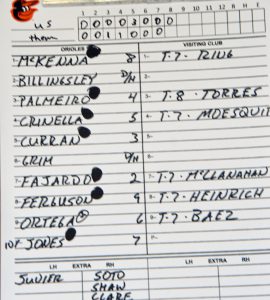 1 2 3 4 5 6 7 8 9 10 11 12 13 14 15
us 0 0 0 3 0 0 0
them 0 0 1 1 0 0 0
ORIOLES VISITING CLUB
1- McKENNA 8 1- T-7 · RING
2- BILLINGSLEY D/H
3- PALMEIRO 4 3- T-8 · TORRES
4- CRINELLA 5 4- T-7 · MOESQUIT
5- CURRAN 3 5-
6- GRIM P/H 6-
7- FAJARDO 2 7- T-7 · McLLANAHAN
8- FERGUSON 9 8- T-7 · HEINRICH
9- ORTEGA 6 9- T-7 · BAEZ
10F JONES 7
LH EXTRA RH LH EXTRA RH
SOTO
SHAW
CLARE